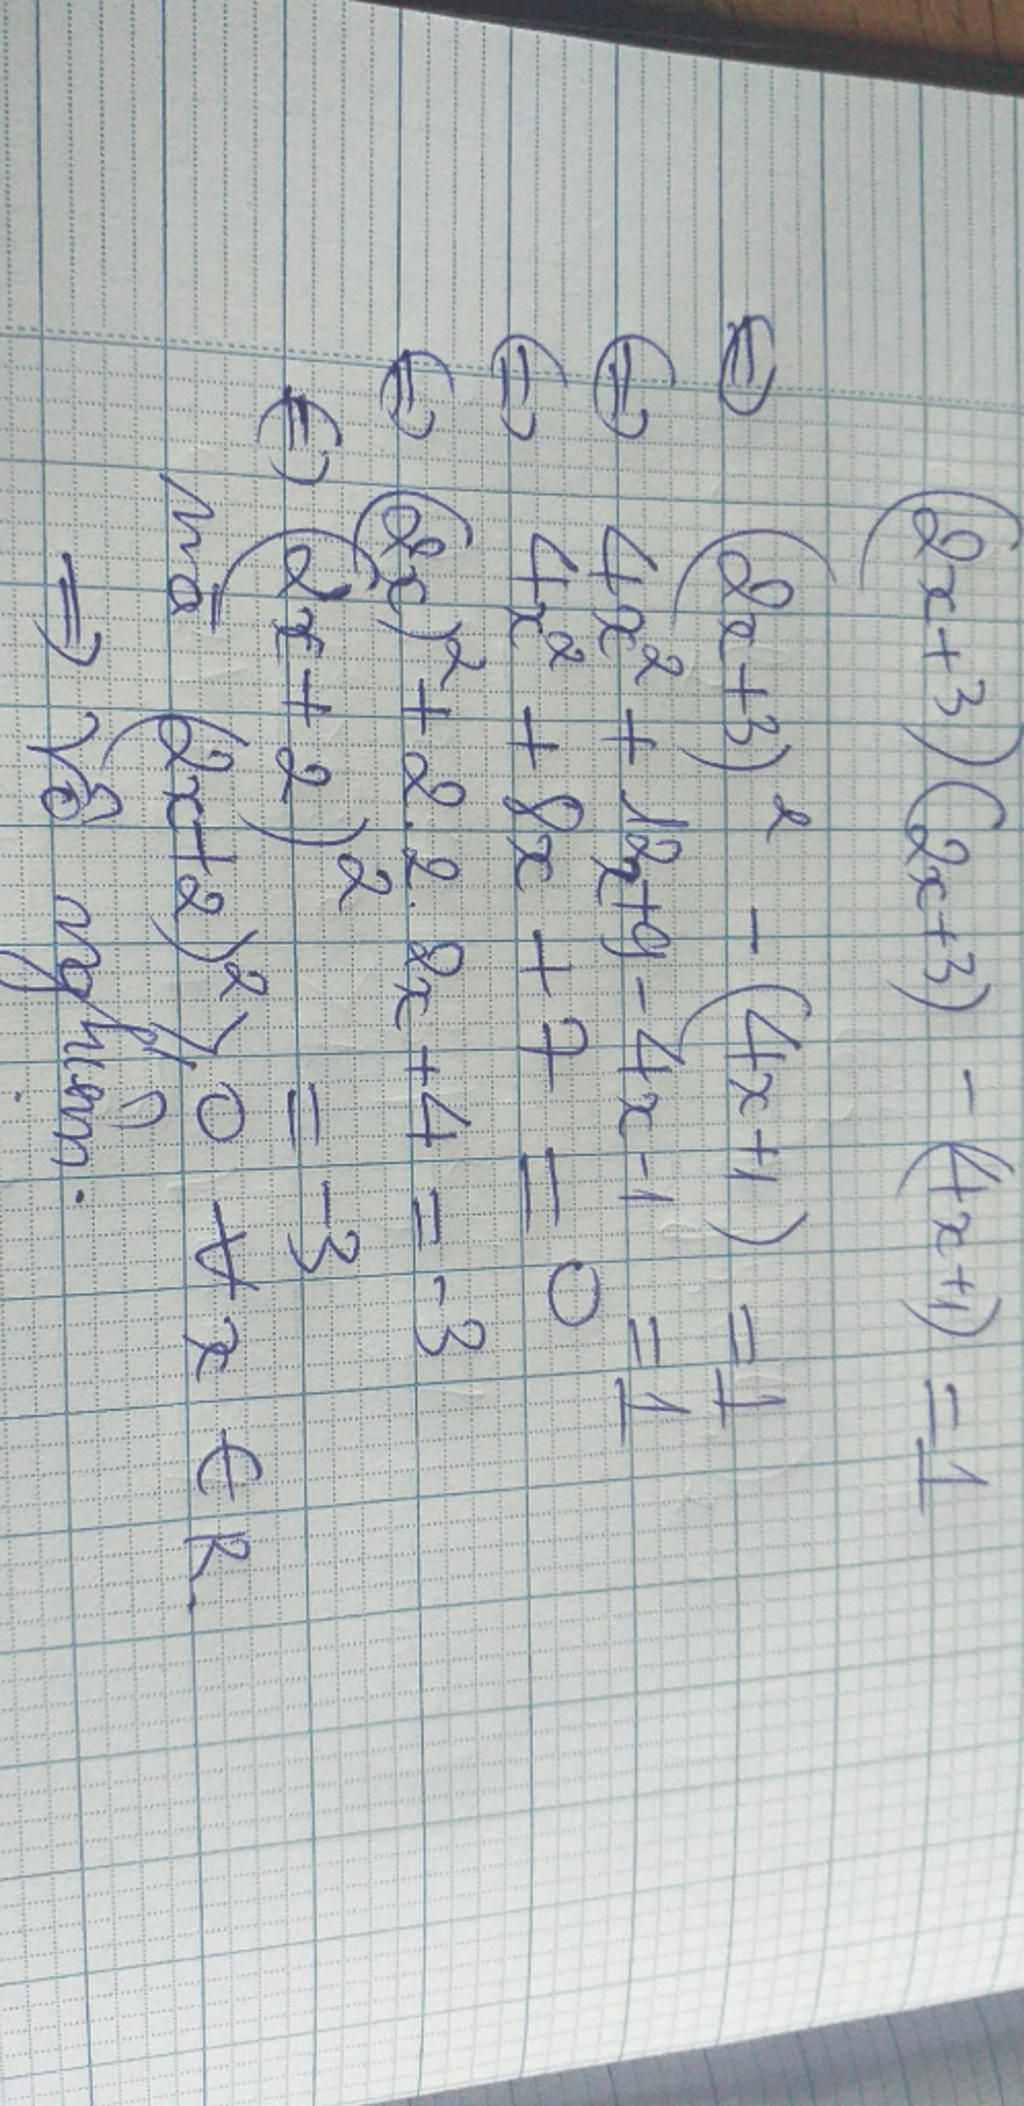 (2x+3)(2x+3) - (4x+1) = 1
⇔ (2x+3)² - (4x+1) = 1
⇔ 4x² + 12x+9 - 4x - 1 = 1
⇔ 4x² + 8x + 7 = 0
⇔ (2x)² + 2.2.2x + 4 = -3
⇔ (2x+2)² = -3
mà (2x+2)² ⩾ 0 ∀ x ∈ R.
⇒ Vô nghiệm.